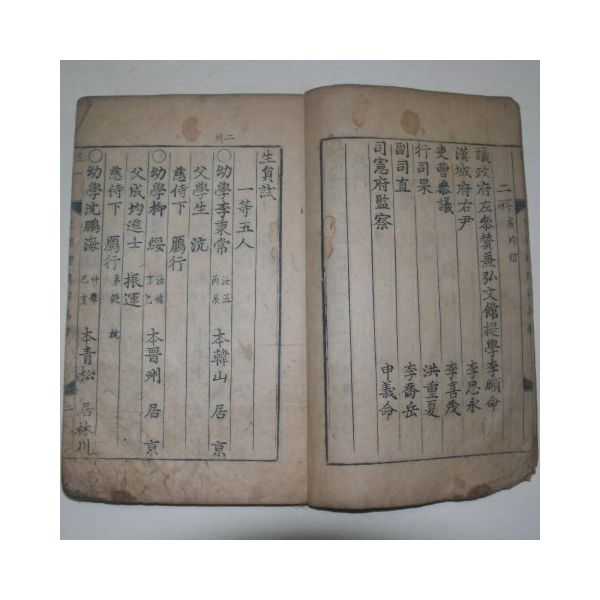 二所
議政府左參贊兼弘文館提學李頤命
漢城府右尹 李思永
吏曹參議 李喜茂
行司果 洪重夏
副司直 李喬岳
司憲府監察 申義命
生員試
一等五人
○幼學李秉常 汝五 丙辰 本韓山 居京
父學生 沆
慈侍下 鴈行
○幼學柳 綏 丁巳 本晉州 居京
父成均進士 振運
慈侍下 鴈行
○幼學沈鵬海 本青松 居林川